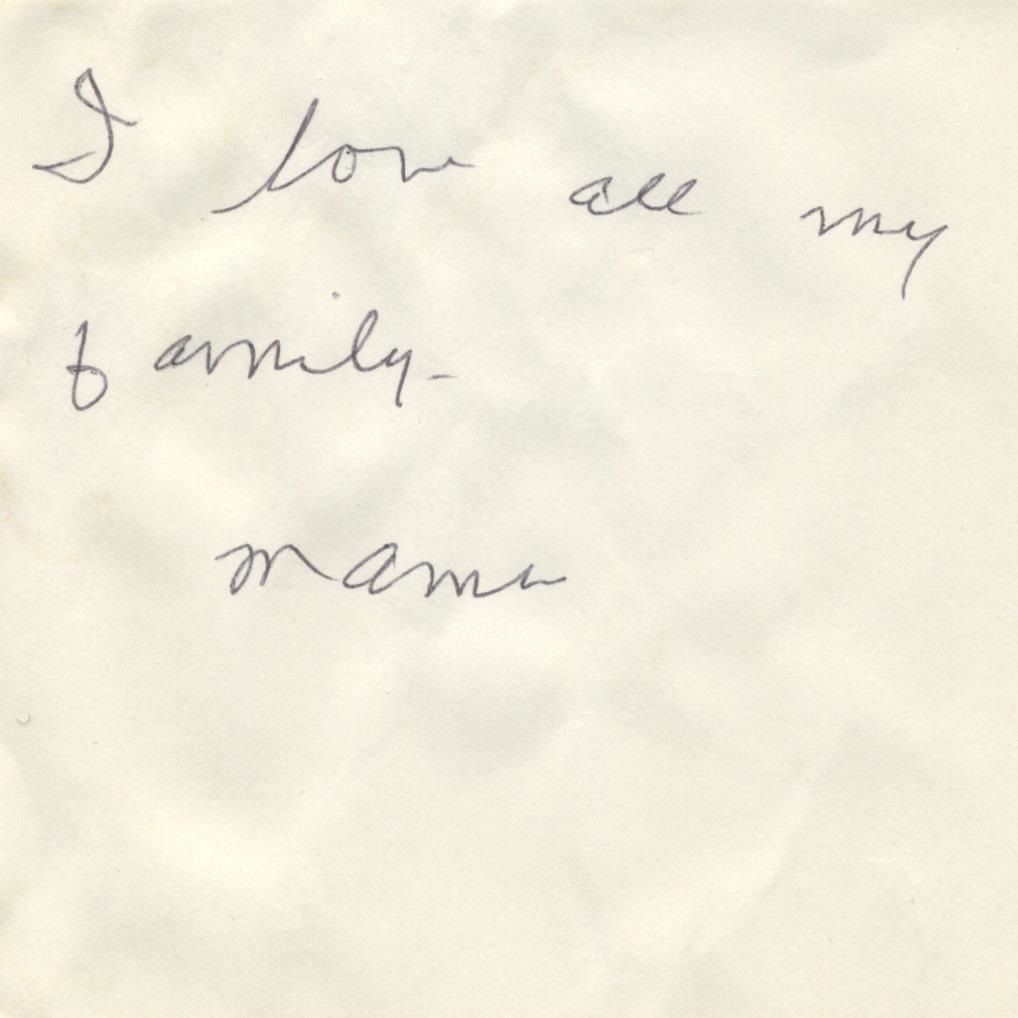 I love all my
family-
mama